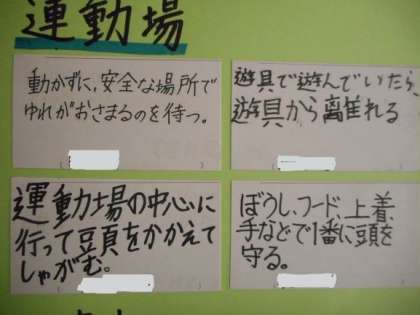 運動場
動かずに、安全な場所で
ゆれがおさまるのを待つ。
遊具で遊んでいたら、
遊具から離れる
運動場の中心に
行って頭をかかえて
しゃがむ。
ぼうし、フード、上着、
手などで1番に頭を
守る。